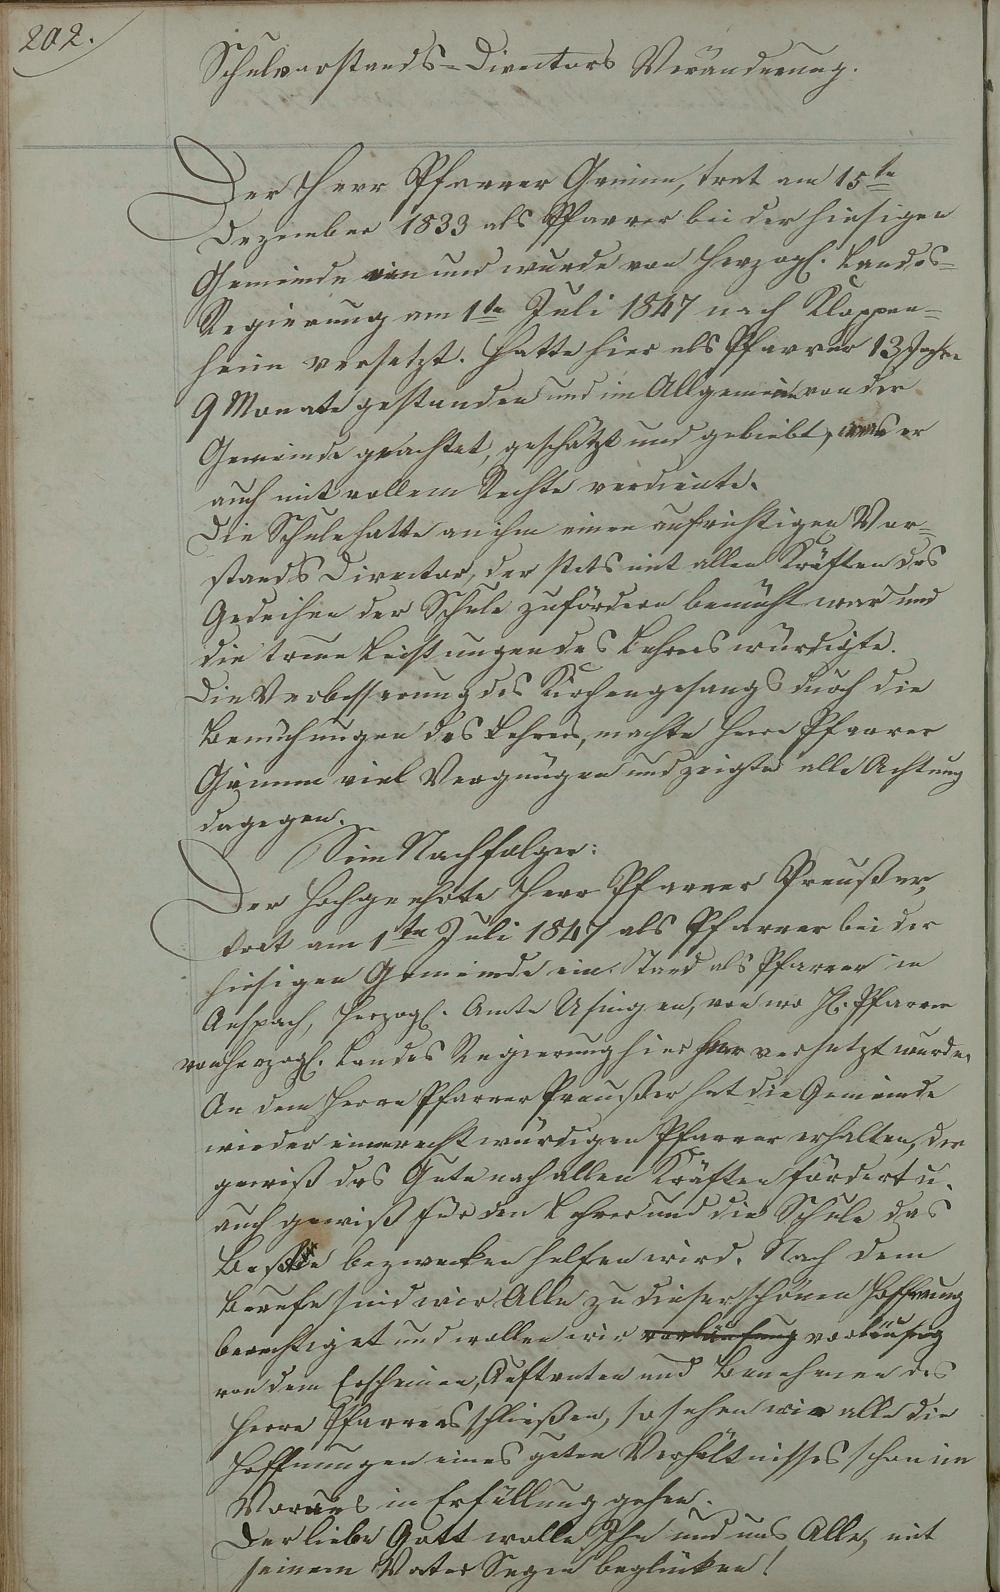 202.
Schulvorstands-Directors Veränderung.
Der Herr Pfarrer Grimm, trat am 15te
Dezember 1833 als Pfarrer bei der hiesigen
Gemeinde ein und wurde von Herzogl. Landes-
Regierung am 1te Juli 1847 nach Kloppen-
heim versetzt. Hatte hier als Pfarrer 13 Jahre
9 Monate gestanden und im Allgemein von der
Gemeinde geachtet, geschätzt und geliebt, was er
auch mit vollem Rechte verdiente.
Die Schule hatte an ihm einen aufrichtigen Vor-
stands Director, der stets mit allen Kräften das
Gedeihen der Schule zufördern bemüht war und
die treue Leistungen des Lehrers würdigte.
Die Verbesserung des Kirchengesangs durch die
Bemühungen des Lehrers, machte Herrn Pfarrer
Grimm viel Vergnügen und zeigte alle Achtung
dagegen.
Sein Nachfolger:
Der hochgeehrte Herr Pfarrer Preußer,
trat am 1te Juli 1847 als Pfarrer bei der
hiesigen Gemeinde ein. Stand als Pfarrer in
Anspach, Herzogl. Amts Usingen, von wo H. Pfarrer
von Herzogl. Landes Regierung hier her versetzt wurde.
An dem Herrn Pfarrer Preußer hat die Gemeinde
wieder einen recht würdigen Pfarrer erhalten, der
gewiß das Gute nach allen Kräften fördert u.
auch gewiß für den Lehrer und die Schule das
Beste bezwecken helfen wird. Nach dem
Berufe sind wir Alle zu dieser schönen Hoffnung
berechtiget und wollen wir vorläufig
von dem Erscheinen, Auftreten und Benehmen des
Herrn Pfarrers schließen, so sehen wir alle die
Hoffnungen eines guten Verhältnisses schon im
Voraus in Erfüllung gehen.
Der liebe Gott wolle Ihn und uns Alle, mit
seinem Vater Segen beglücken!